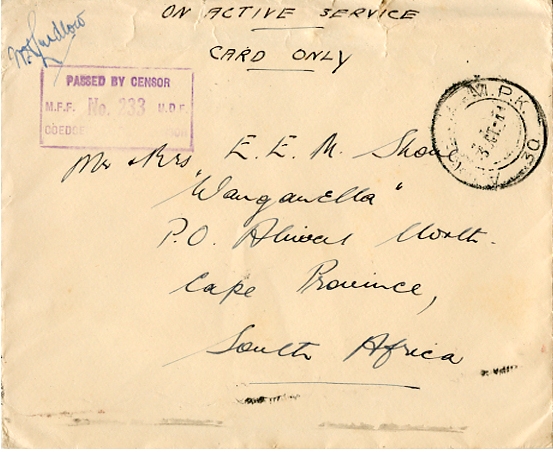 ON ACTIVE SERVICE
CARD ONLY
PASSED BY CENSOR
M.F.F. No. 233 U.D.F.
Mr & Mrs E. E. M. Shaw
"Wanganella"
P.O. Aliwal North.
Cape Province,
South Africa
M.P.K.
30